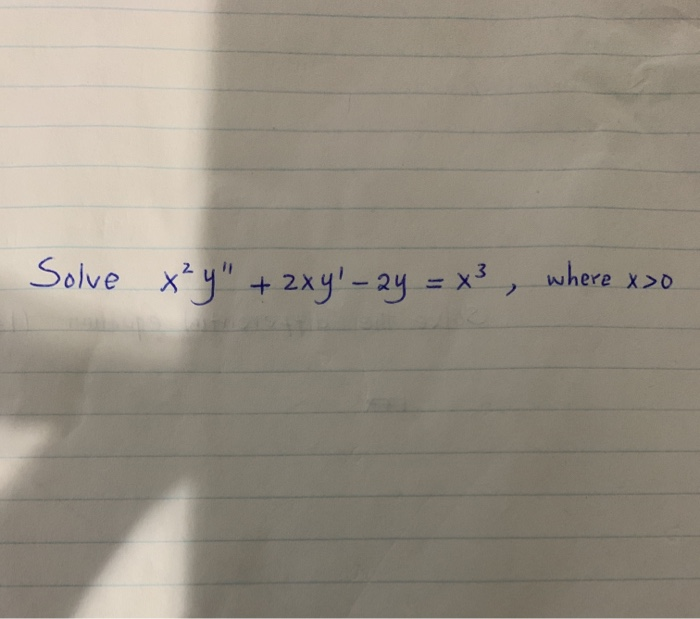 Solve x²y" + 2xy' - 2y = x³, where x>0